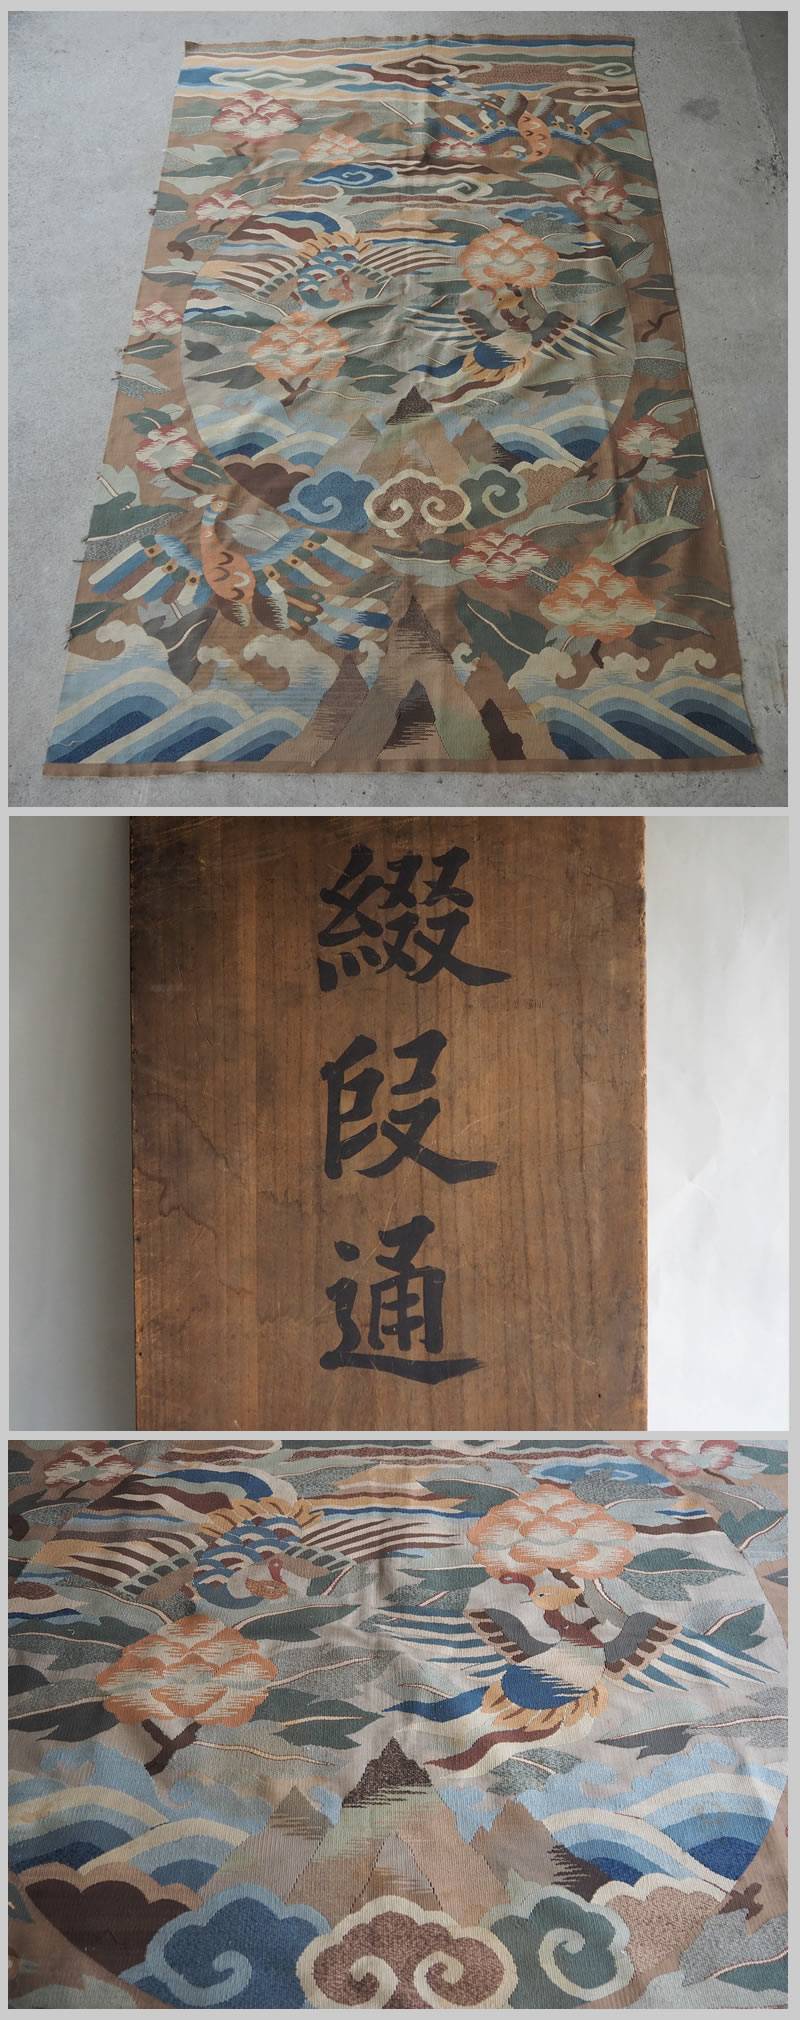 綴段通